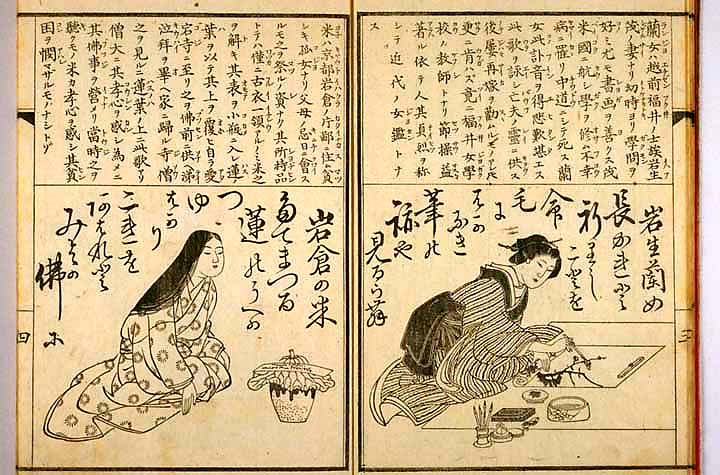 蘭女ハ越前福井ノ士族岩生
茂ノ妻ナリ幼時ヨリ學問ヲ
好ミ尤モ書画ヲ善クス茂
米國ニ航シ學ヲ修ム不幸
病ニ罹リ中道ニシテ死ス蘭
女此訃音ヲ得悲歎甚
此歌ヲ詠シ亡夫ノ靈ニ供ス
後屢再嫁ヲ勸ムルモノアレ
更ニ肯ハズ竟ニ福井女學
校ノ教師トナリ節操益
著ル依テ人其貞烈ヲ称
シテ近代ノ女鑑トナ
ス
岩生蘭め
長かれと
祈りしことを
命
毛
に
はかなき
筆の
跡や
見るらん
三
米ハ京都岩倉ノ片鄙ニ住ム貧
シキ孤女ナリ父母ノ忌日ニ會ス
ルモ之ヲ祭ル資ナク其所持品
トテハ僅ニ古衣一領アルノミ米之
ヲ解キ其表ヲ小瓶ニ入レ蓮
葉ヲ以テ其上ヲ覆ヒ自ラ愛
宕寺ニ至リ之ヲ佛前ニ供ヘ涕
泣拜ヲ畢ヘ家ニ歸ル寺僧
之ヲ見ルニ蓮葉ノ上ニ此歌アリ
僧大ニ其孝心ヲ感シ為メニ
其佛事ヲ營メリ當時之ヲ
聽クモノ米カ孝心ヲ感シ其貧
困ヲ憫マザルモノナシトゾ
岩倉の米
たてまつる
蓮のうへの
つ
ゆ
はかり
これを
あはれと
みよの
佛に
四